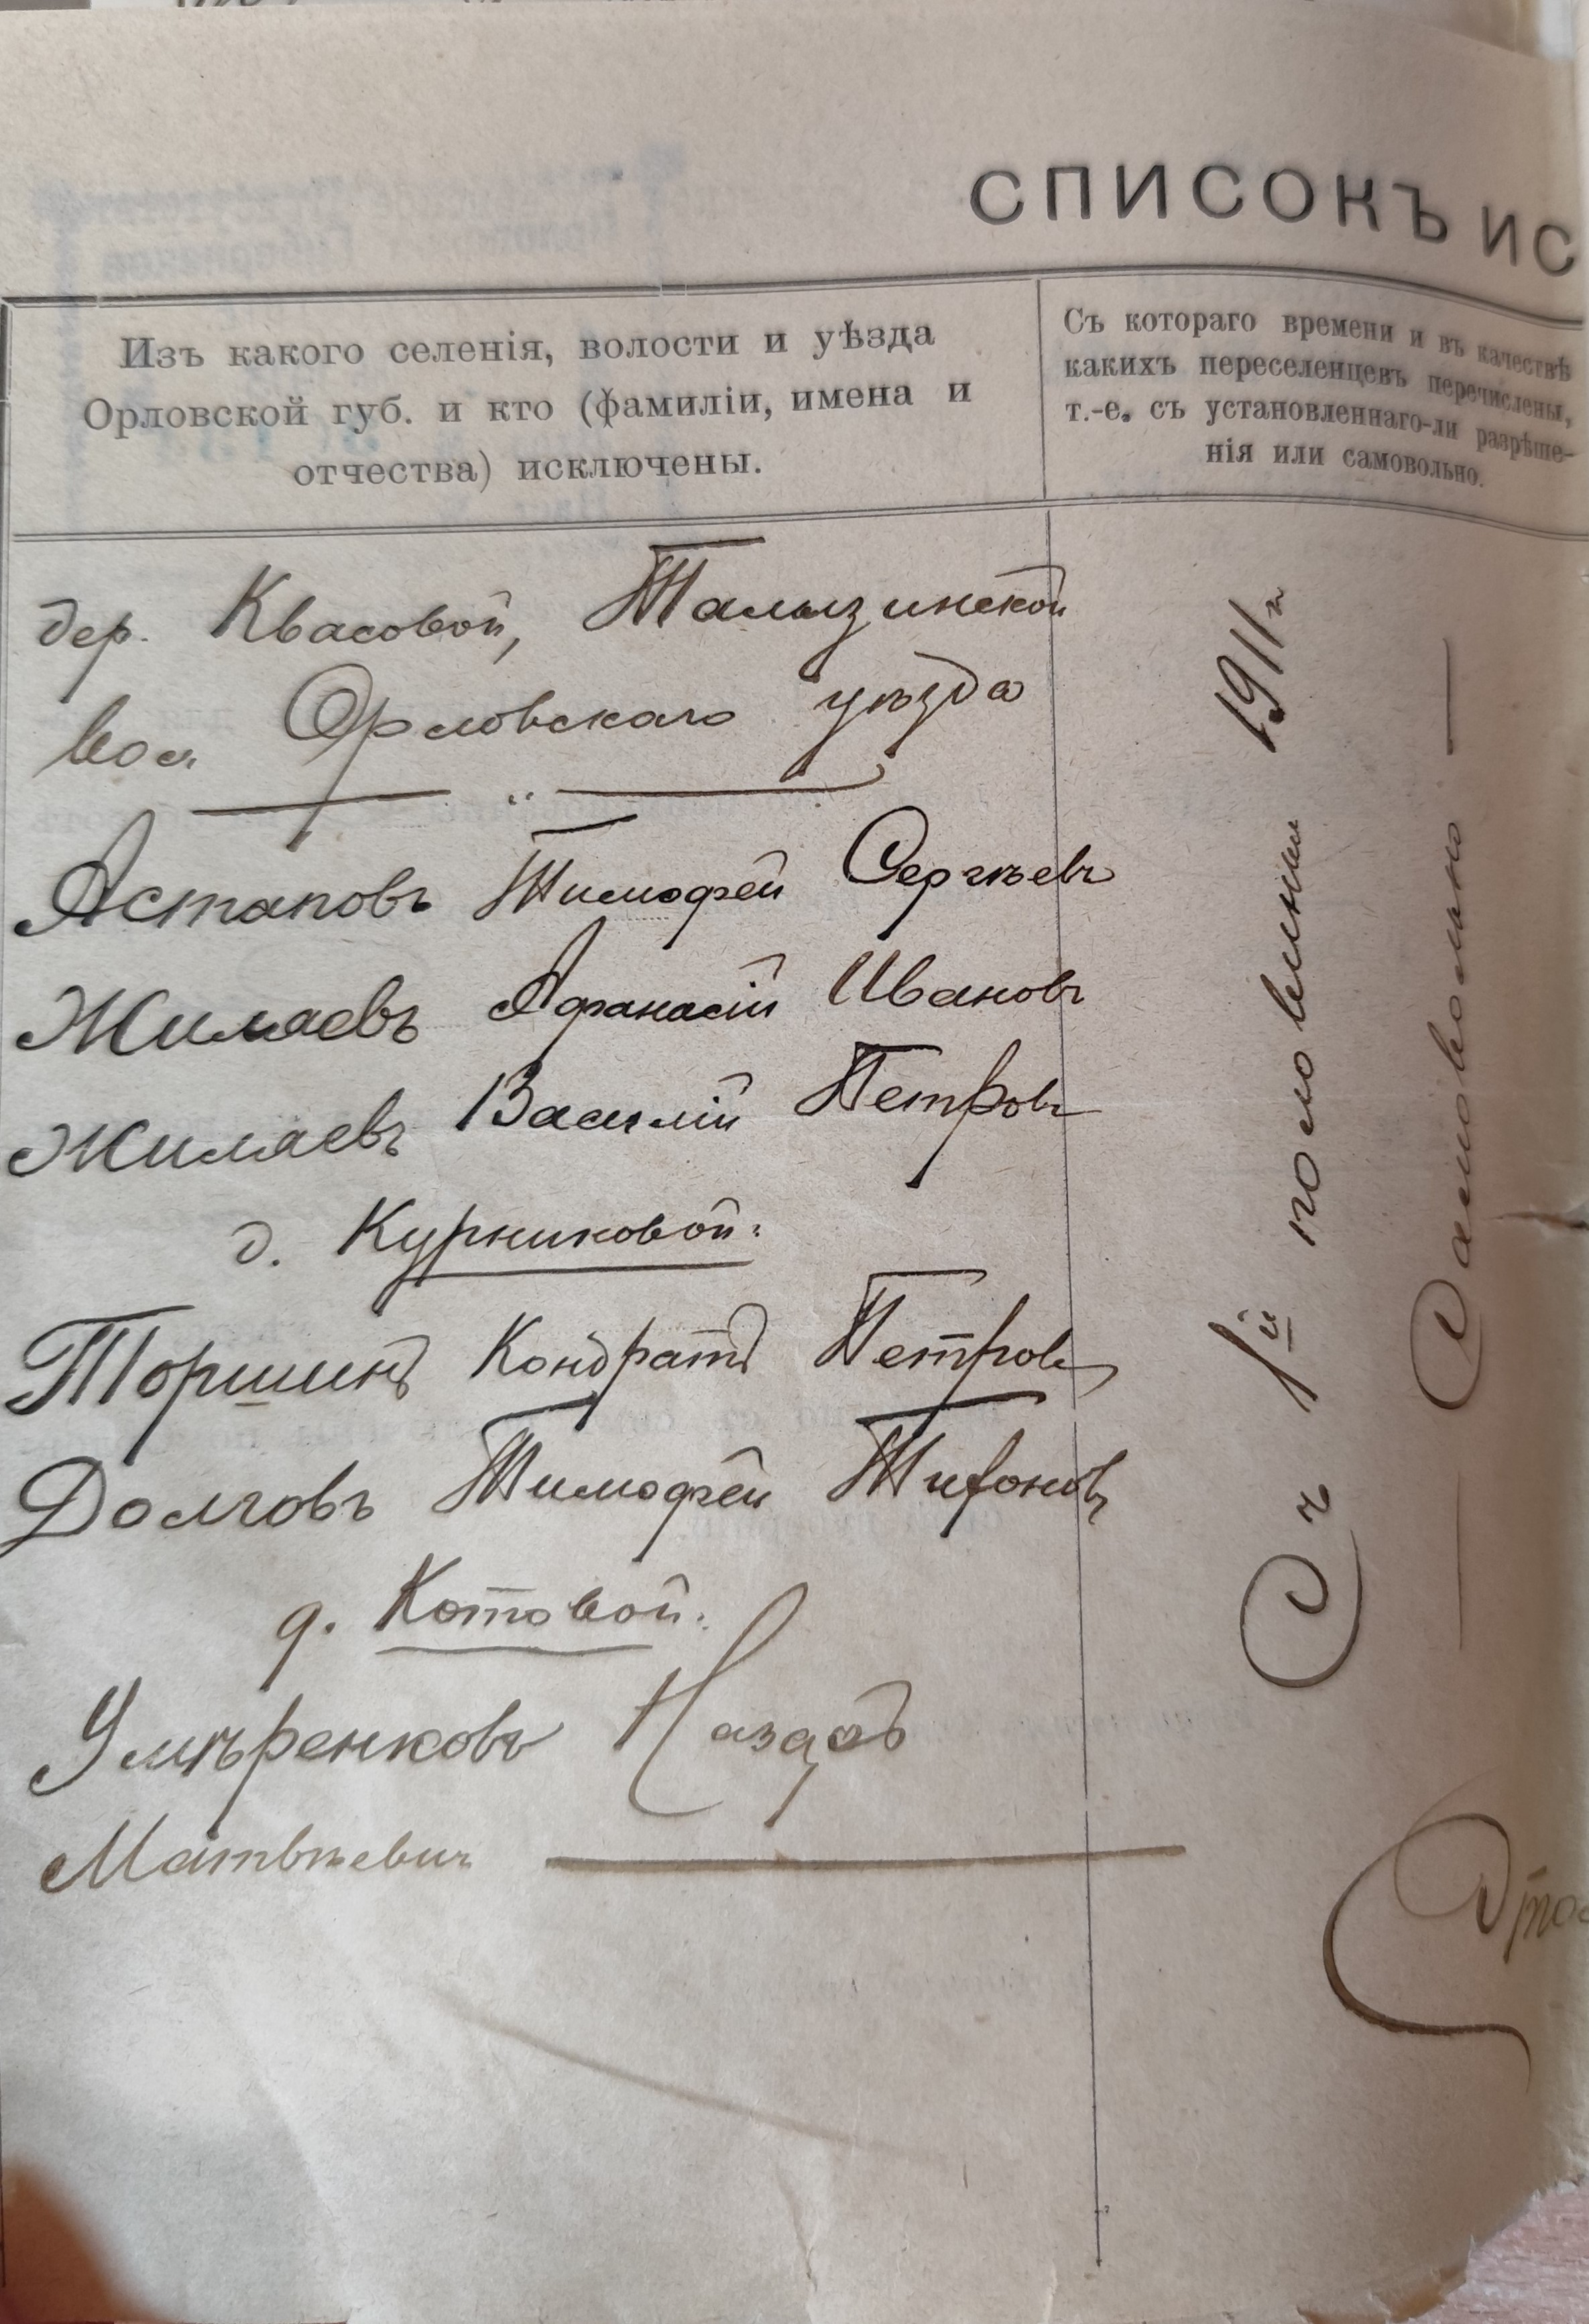 СПИСОКЪ ИС
Изъ какого селенія, волости и уѣзда
Орловской губ. и кто (фамиліи, имена и
отчества) исключены.
Съ котораго времени и въ качествѣ
какихъ переселенцевъ перечислены,
т.-е. съ установленнаго-ли разрѣше-
нія или самовольно.
дер. Квасовой, Талызинской
вол. Орловскаго уѣзда
Астаповъ Тимофей Сергѣевъ
Жиляевъ Афанасій Ивановъ
Жиляевъ Василій Петровъ
д. Курниковой:
Торшинъ Кондратъ Петровъ
Долговъ Тимофей Тифоновъ
д. Котовой:
Умѣренковъ Назаръ
Матвѣевичъ
Съ 1й половины 1911 г
— Самовольно —